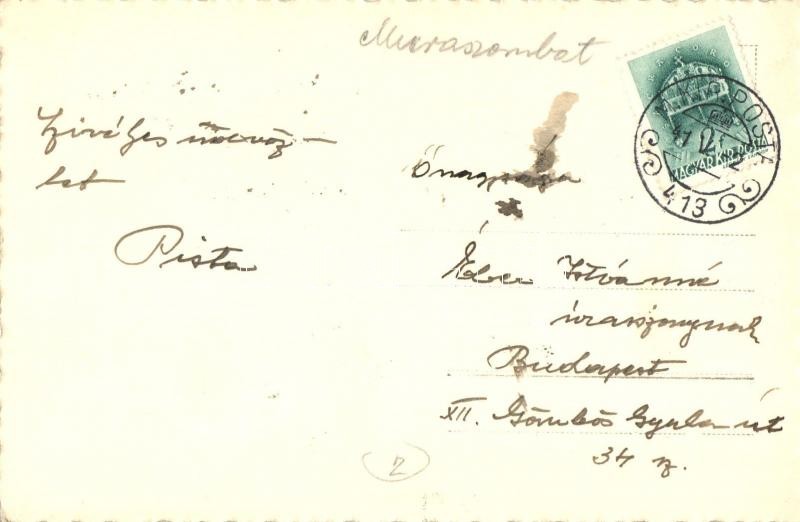 Muraszombat
Szivélyes üdvöz-
let
Pista
Őnagysága
István né
úraszonynak
Budapest
XII. Gömbös Gyula út
34 z.
2
MAGYAR KIR. POSTA
POSTA
413